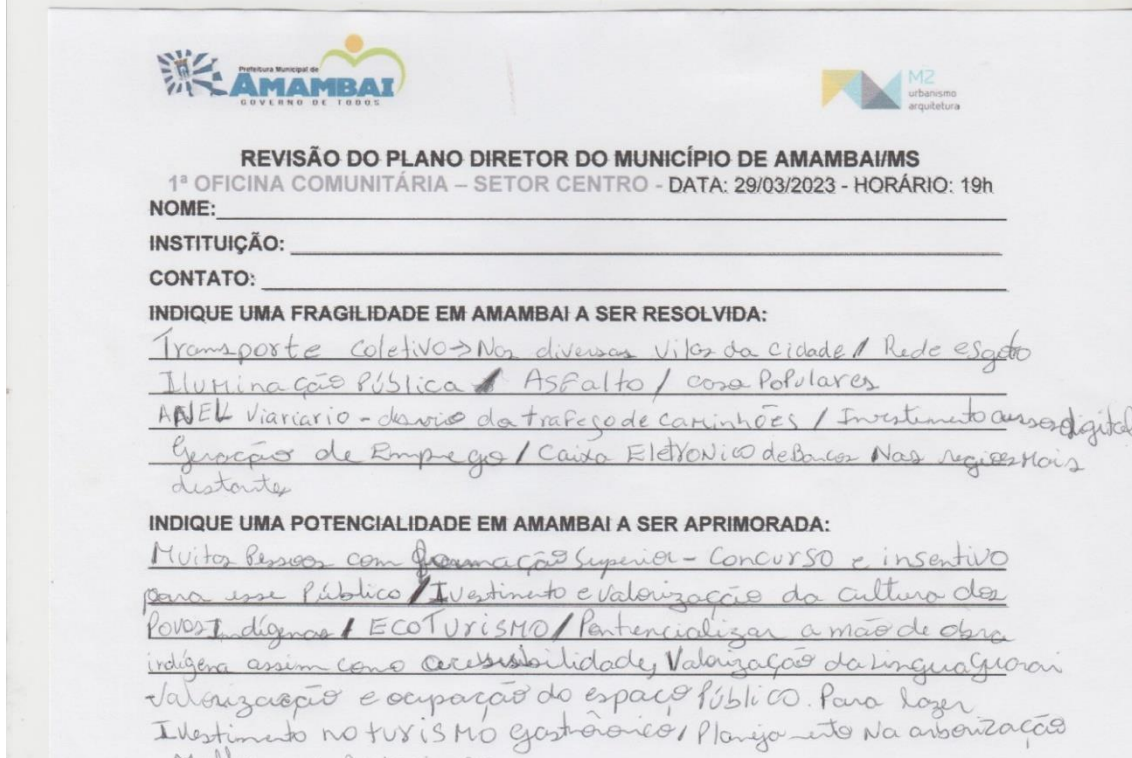 Prefeitura Municipal de
AMAMBAI
GOVERNO DE TODOS
M2
urbanismo
arquitetura
REVISÃO DO PLANO DIRETOR DO MUNICÍPIO DE AMAMBAI/MS
1ª OFICINA COMUNITÁRIA – SETOR CENTRO - DATA: 29/03/2023 - HORÁRIO: 19h
NOME:
INSTITUIÇÃO:
CONTATO:
INDIQUE UMA FRAGILIDADE EM AMAMBAI A SER RESOLVIDA:
Transporte coletivo → Nas diversas vilas da cidade / Rede esgoto
Iluminação Pública / Asfalto / casa Populares
ANEL Viariario - desvio da trafego de caminhões / Investimento digital
Geração de Emprego / Caixa Eletronico de Bancos Nas regiões Mais
distantes
INDIQUE UMA POTENCIALIDADE EM AMAMBAI A SER APRIMORADA:
Muitas Pessoas com formação Superior - Concurso e insentivo
para esse Público / Ivestimento e valorização da cultura dos
Povos Indígenas / ECOTURISMO / Pontencializar a mão de obra
indígena assim como acessibilidade, Valorização da Lingua Guarai
Valorização e ocupação do espaço Público. Para lazer
Ivestimento no turismo gastrôonico / Planejamento Na arborização